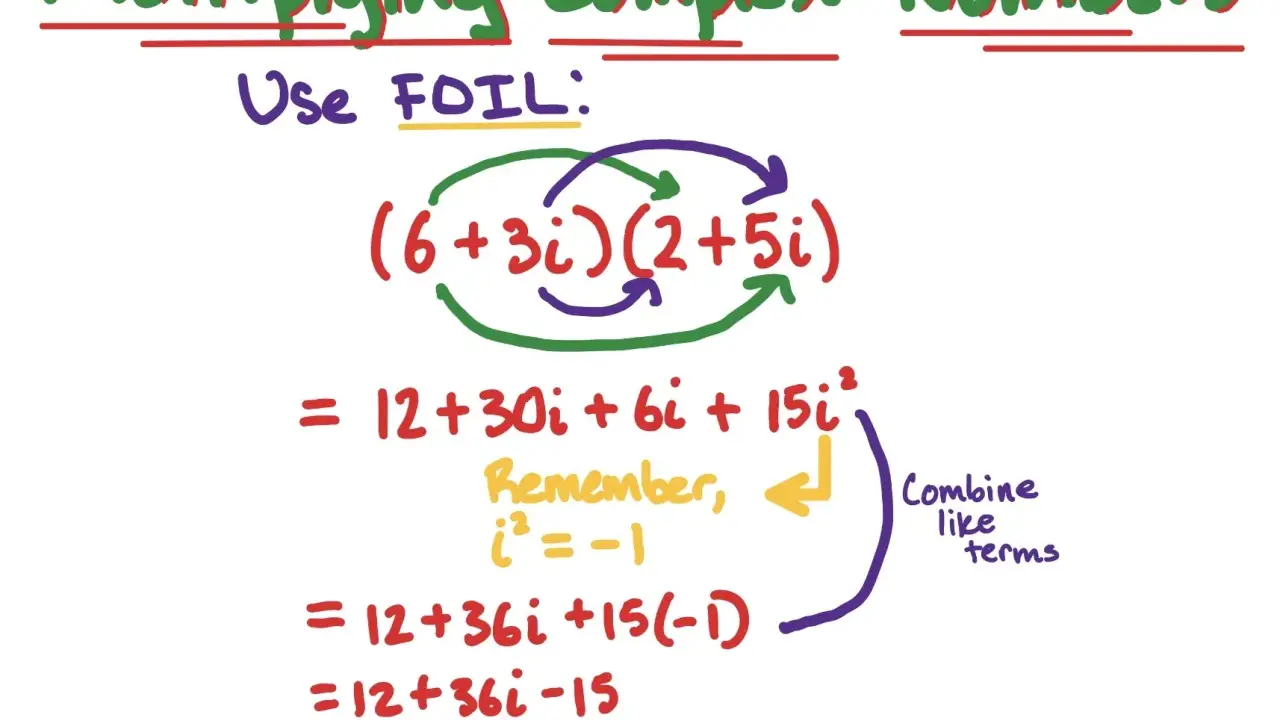 Multiplying Complex Numbers
Use FOIL:
(6+3i)(2+5i)
= 12+30i+6i+15i²
Remember,
i² = -1
Combine
like
terms
= 12+36i+15(-1)
= 12+36i-15